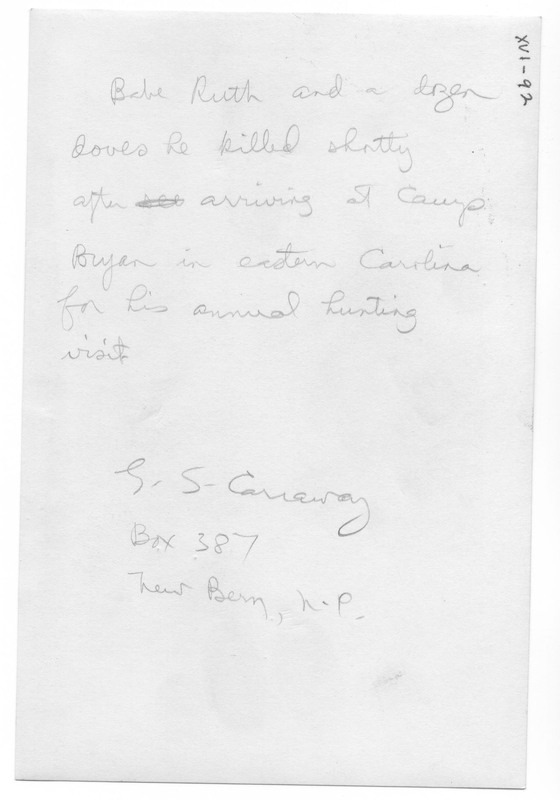 XVI-92
Babe Ruth and a dozen
doves he killed shortly
after arriving at Camp
Bryan in eastern Carolina
for his annual hunting
visit
G. S. Carraway
Box 387
New Bern, N.C.